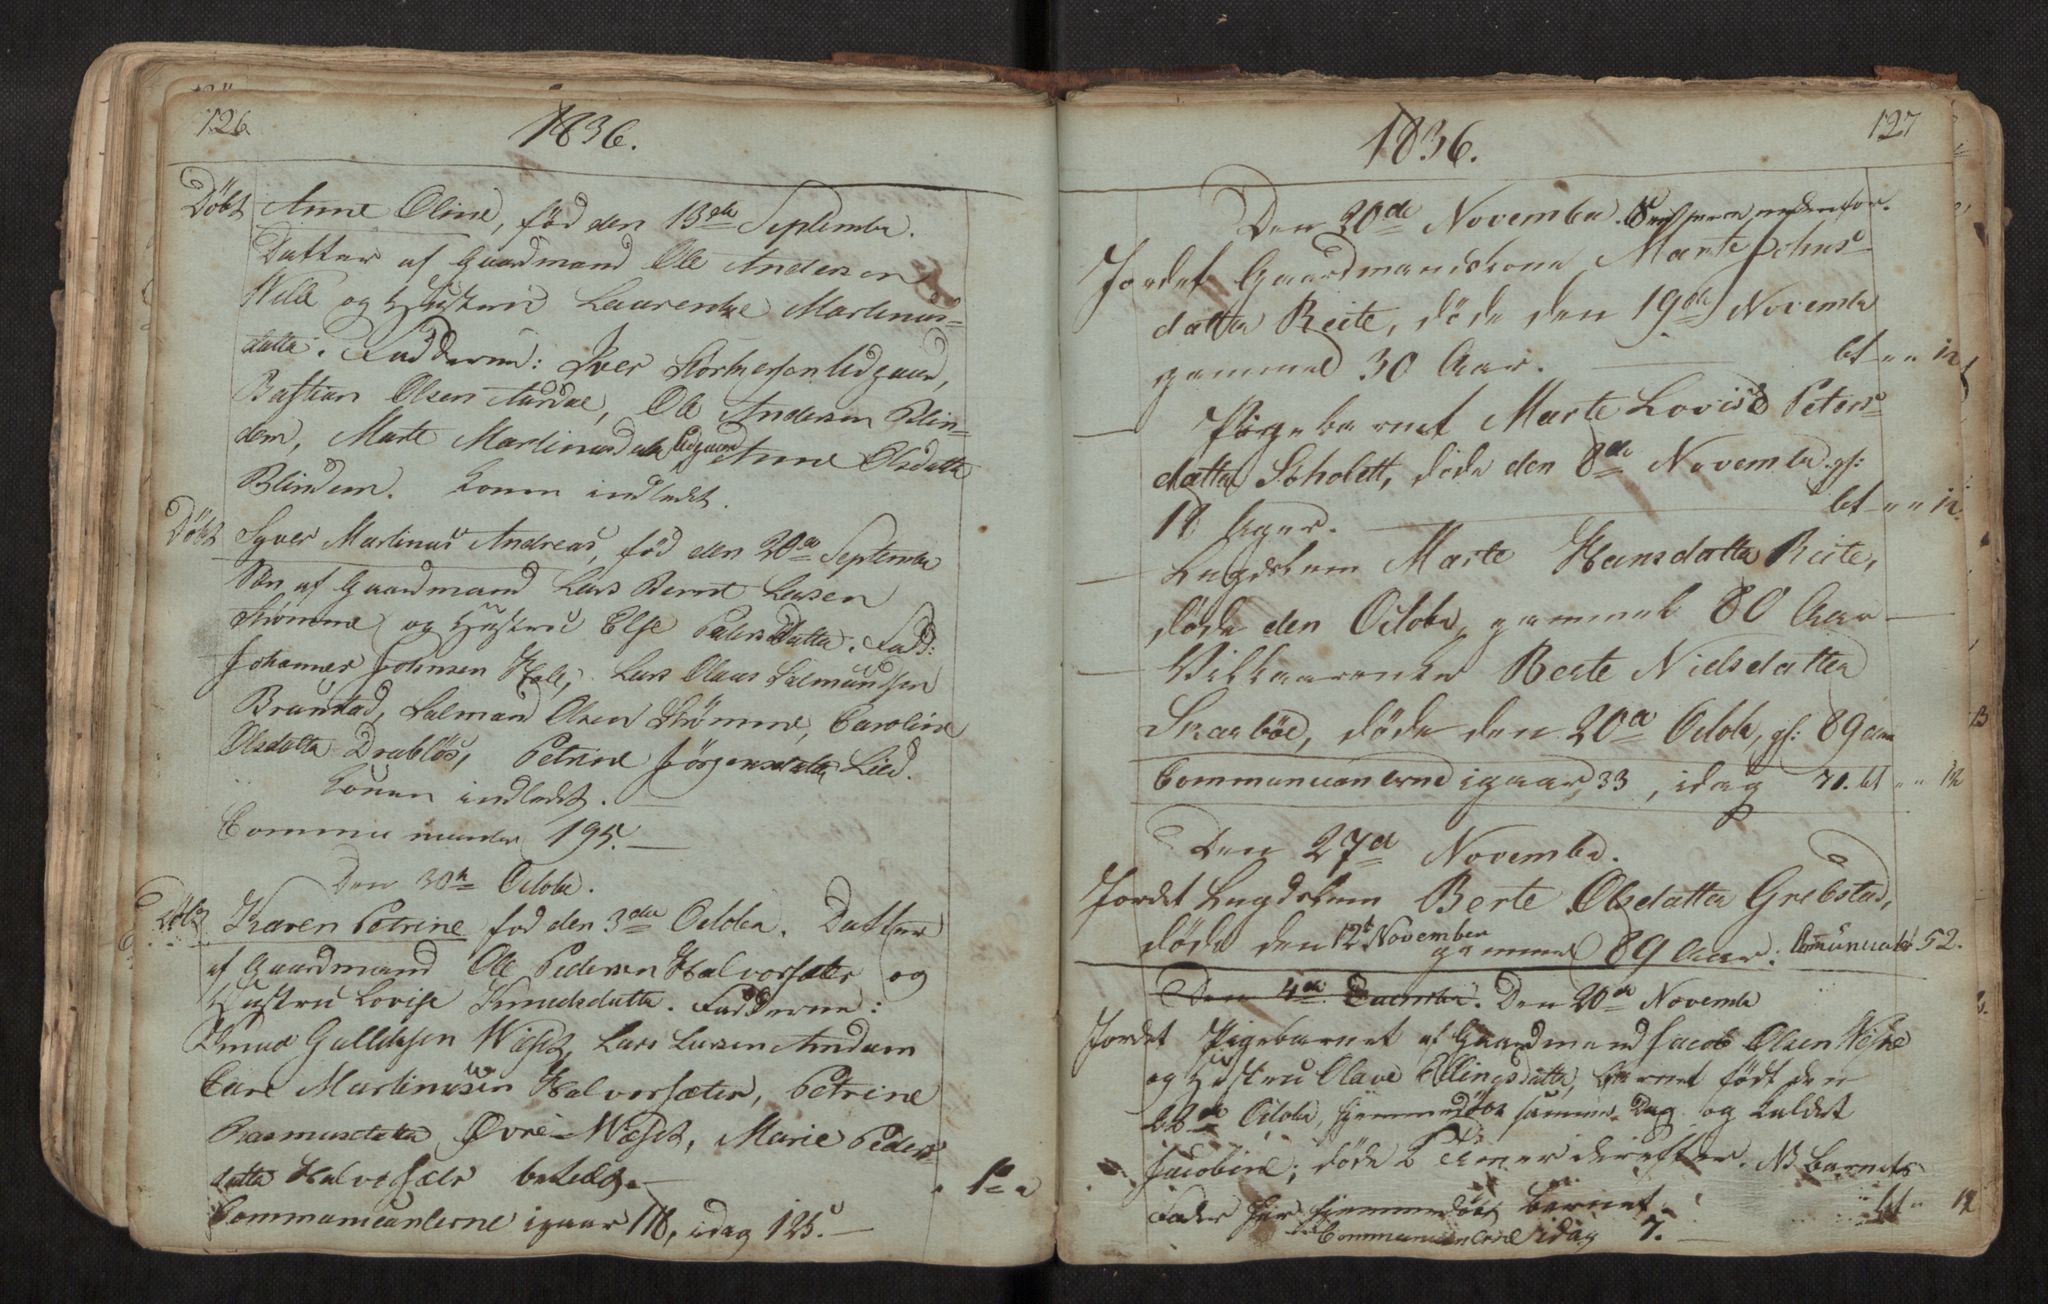 126.
1836.
Döbt Anne Oline, föd den 13de September.
Datter af Gaardmand Ole Andersen
Wille og Hustru Laurentze Martinus-
datter. Fadderne: Iver Udgaard,
Bastian Olsen Aurdal, Ole Andersen Blin-
dem, Marte Martinusdatter Udgaard Anne Olsdatter
Blindem. Konen indledet.
Döbt Syver Martinus Andreas, föd den 20de September
Sön af Gaardmand Lars Bernt Larsen
Strömme og Hustru Else Petersdatter. Fadd:
Johannes Johnsen Hole, Lars Olaus Salmundsen
Brunstad, Salmund Olsen Strömme, Caroline
Olsdatter Drablös, Petrine Jörgensdatter Lied.
Konen indledet.
Communicanter 195.
Den 30te Octobr.
Döbt Karen Petrine föd den 3die October. Datter
af Gaardmand Ole Pedersen Halvorsæter og
Hustru Lovise Knudsdatter. Fadderne:
Knud Gulliksen Wæset, Lars Larsen Amdam
Carl Martinussen Halvorsæter, Petrine
Rasmusdatter Øvre-Wæset, Marie Peders-
datter Halvorsæter
Communicanterne igaar 118, idag 125.
127
1836.
Den 20de November. nedenfor.
Jordet Gaardmandskone Marte Johns-
datter Reite, döde den 19de November
gammel 30 Aar. bt - - 12
Pigebarnet Marte Lovise Peters-
datter Scholett, döde den 8de November gl:
11 Uger. bt - - 12
Lægdslem Marte Hansdatter Reite,
döde den October, gammel 80 Aar
Vilkaarenke Berte Nielsdatter
Skarböe, döde den 20de Octobr, gl: 89 Aar
Communicanterne igaar 33, idag 71. bt - - 12
Den 27de November.
Jordet Lægdslem Berte Olsdatter Grebstad,
döde den 12te November gammel 89 Aar. Comunicanter 52.
Den 4de December. Den 20de November
Jordet Pigebarnet af Gaardmand Jacob Olsen Wiske
og Hustru Olave Ellingsdatter, Barnet födt den
22de Octobr, hjemmedöbt samme Dag og kaldet
Jacobine; döde 2 Timer derefter. NB Barnets
Fader har hjemmedöbt barnet. bt - 12
Communicanterne idag 7.